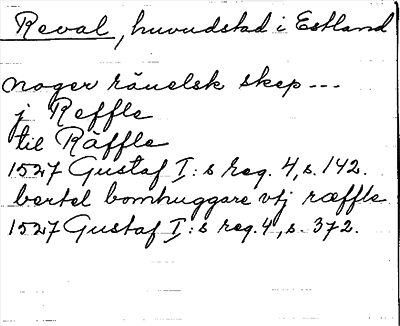 Reval, huvudstad i Estland
noger räuelsk skep ---
j Reffle
til Räffle
1527 Gustaf I:s reg. 4, s. 142.
bertel bomhuggare vtj ræffle
1527 Gustaf I:s reg. 4, s. 372.